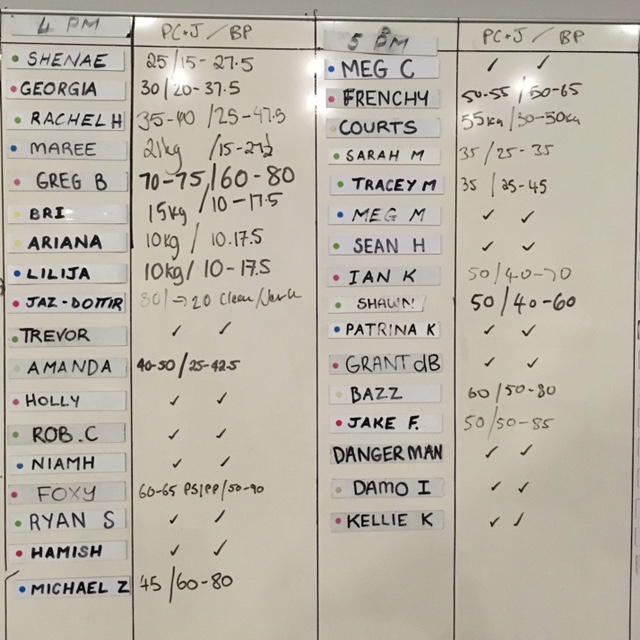 4 PM PC+J / BP
SHENAE 25/15-27.5
GEORGIA 30/20-37.5
RACHEL H 35-40 /25-47.5
MAREE 21kg /15-27½
GREG B 70-75/60-80
BRI 15kg /10-17.5
ARIANA 10kg / 10.17.5
LILIJA 10kg/ 10-17.5
JAZ-DOTTIR 30/→20 Clean/Jerk
TREVOR ✓ ✓
AMANDA 40-50/25-42.5
HOLLY ✓ ✓
ROB.C ✓ ✓
NIAMH ✓ ✓
FOXY 60-65 PS/PP/50-90
RYAN S ✓ ✓
HAMISH ✓ ✓
MICHAEL Z 45/60-80
5 PM PC+J / BP
MEG C ✓ ✓
FRENCHY 50-55/50-65
COURTS 55kg/30-50kg
SARAH M 35/25-35
TRACEY M 35 /35-45
MEG M ✓ ✓
SEAN H ✓ ✓
IAN K 50/40-70
SHAUN 50/40-60
PATRINA K ✓ ✓
GRANT dB ✓ ✓
BAZZ 60/50-80
JAKE F. 50/50-85
DANGERMAN ✓ ✓
DAMO I ✓ ✓
KELLIE K ✓ ✓